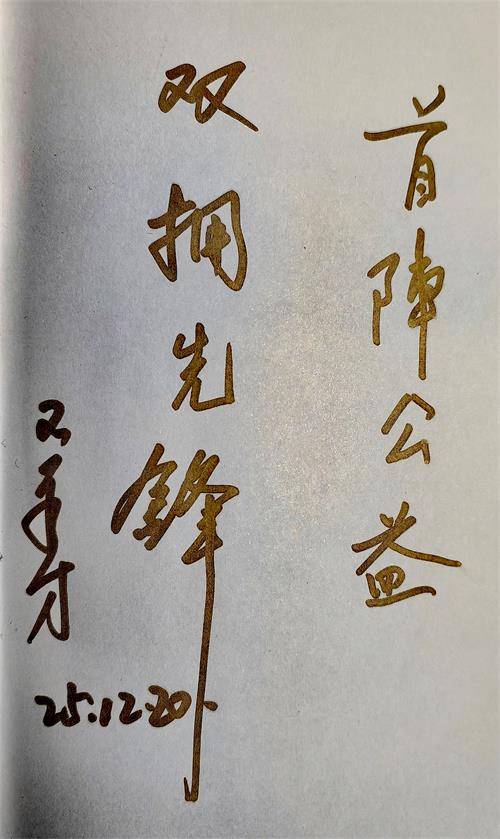 首陣公益
双拥先锋
25.12.20.